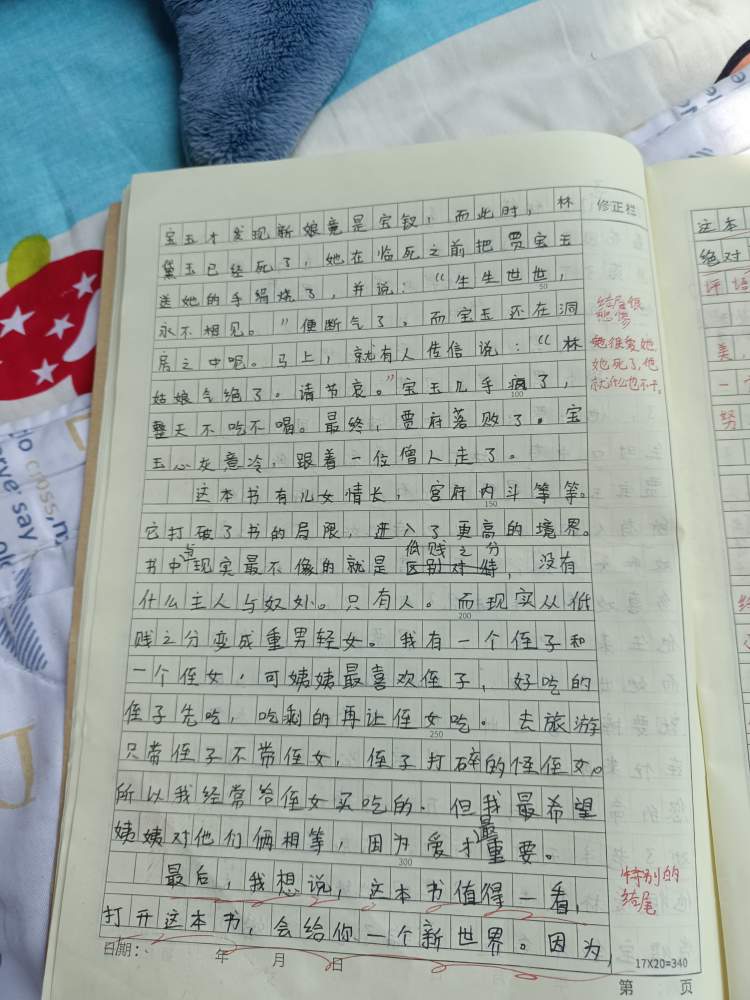 宝玉才发现新娘竟是宝钗，而此时，林
修正栏
黛玉已经死了，她在临死之前把贾宝玉
送她的手绢烧了，并说：“生生世世，
50
永不相见。”便断气了，而宝玉还在洞
结尾很悲惨
房之中呢。马上，就有人传信说：“林
她很爱她
她死了，他
就什么也不干。
姑娘气绝了。请节哀。”宝玉几乎疯了，
100
整天不吃不喝。最终，贾府落败了。宝
玉心灰意冷，跟着一位僧人走了。
这本书有儿女情长，宫府内斗等等。
150
它打破了书的局限，进入了更高的境界。
书中与现实最不像的就是低贱之分区别对待，没有
什么主人与奴处。只有人。而现实从低
200
贱之分变成重男轻女。我有一个侄子和
一个侄女，可姨姨最喜欢侄子，好吃的
侄子先吃，吃剩的再让侄女吃。去旅游
250
只带侄子不带侄女，侄子打碎的怪侄女。
所以我经常给侄女买吃的。但我最希望
姨姨对他们俩相等，因为爱才最重要。
300
最后，我想说，这本书值得一看，
特别的
结尾
打开这本书，会给你一个新世界。因为，
日期： 年 月 日
17X20=340
第 页
这本
绝对
评语
美
一
努